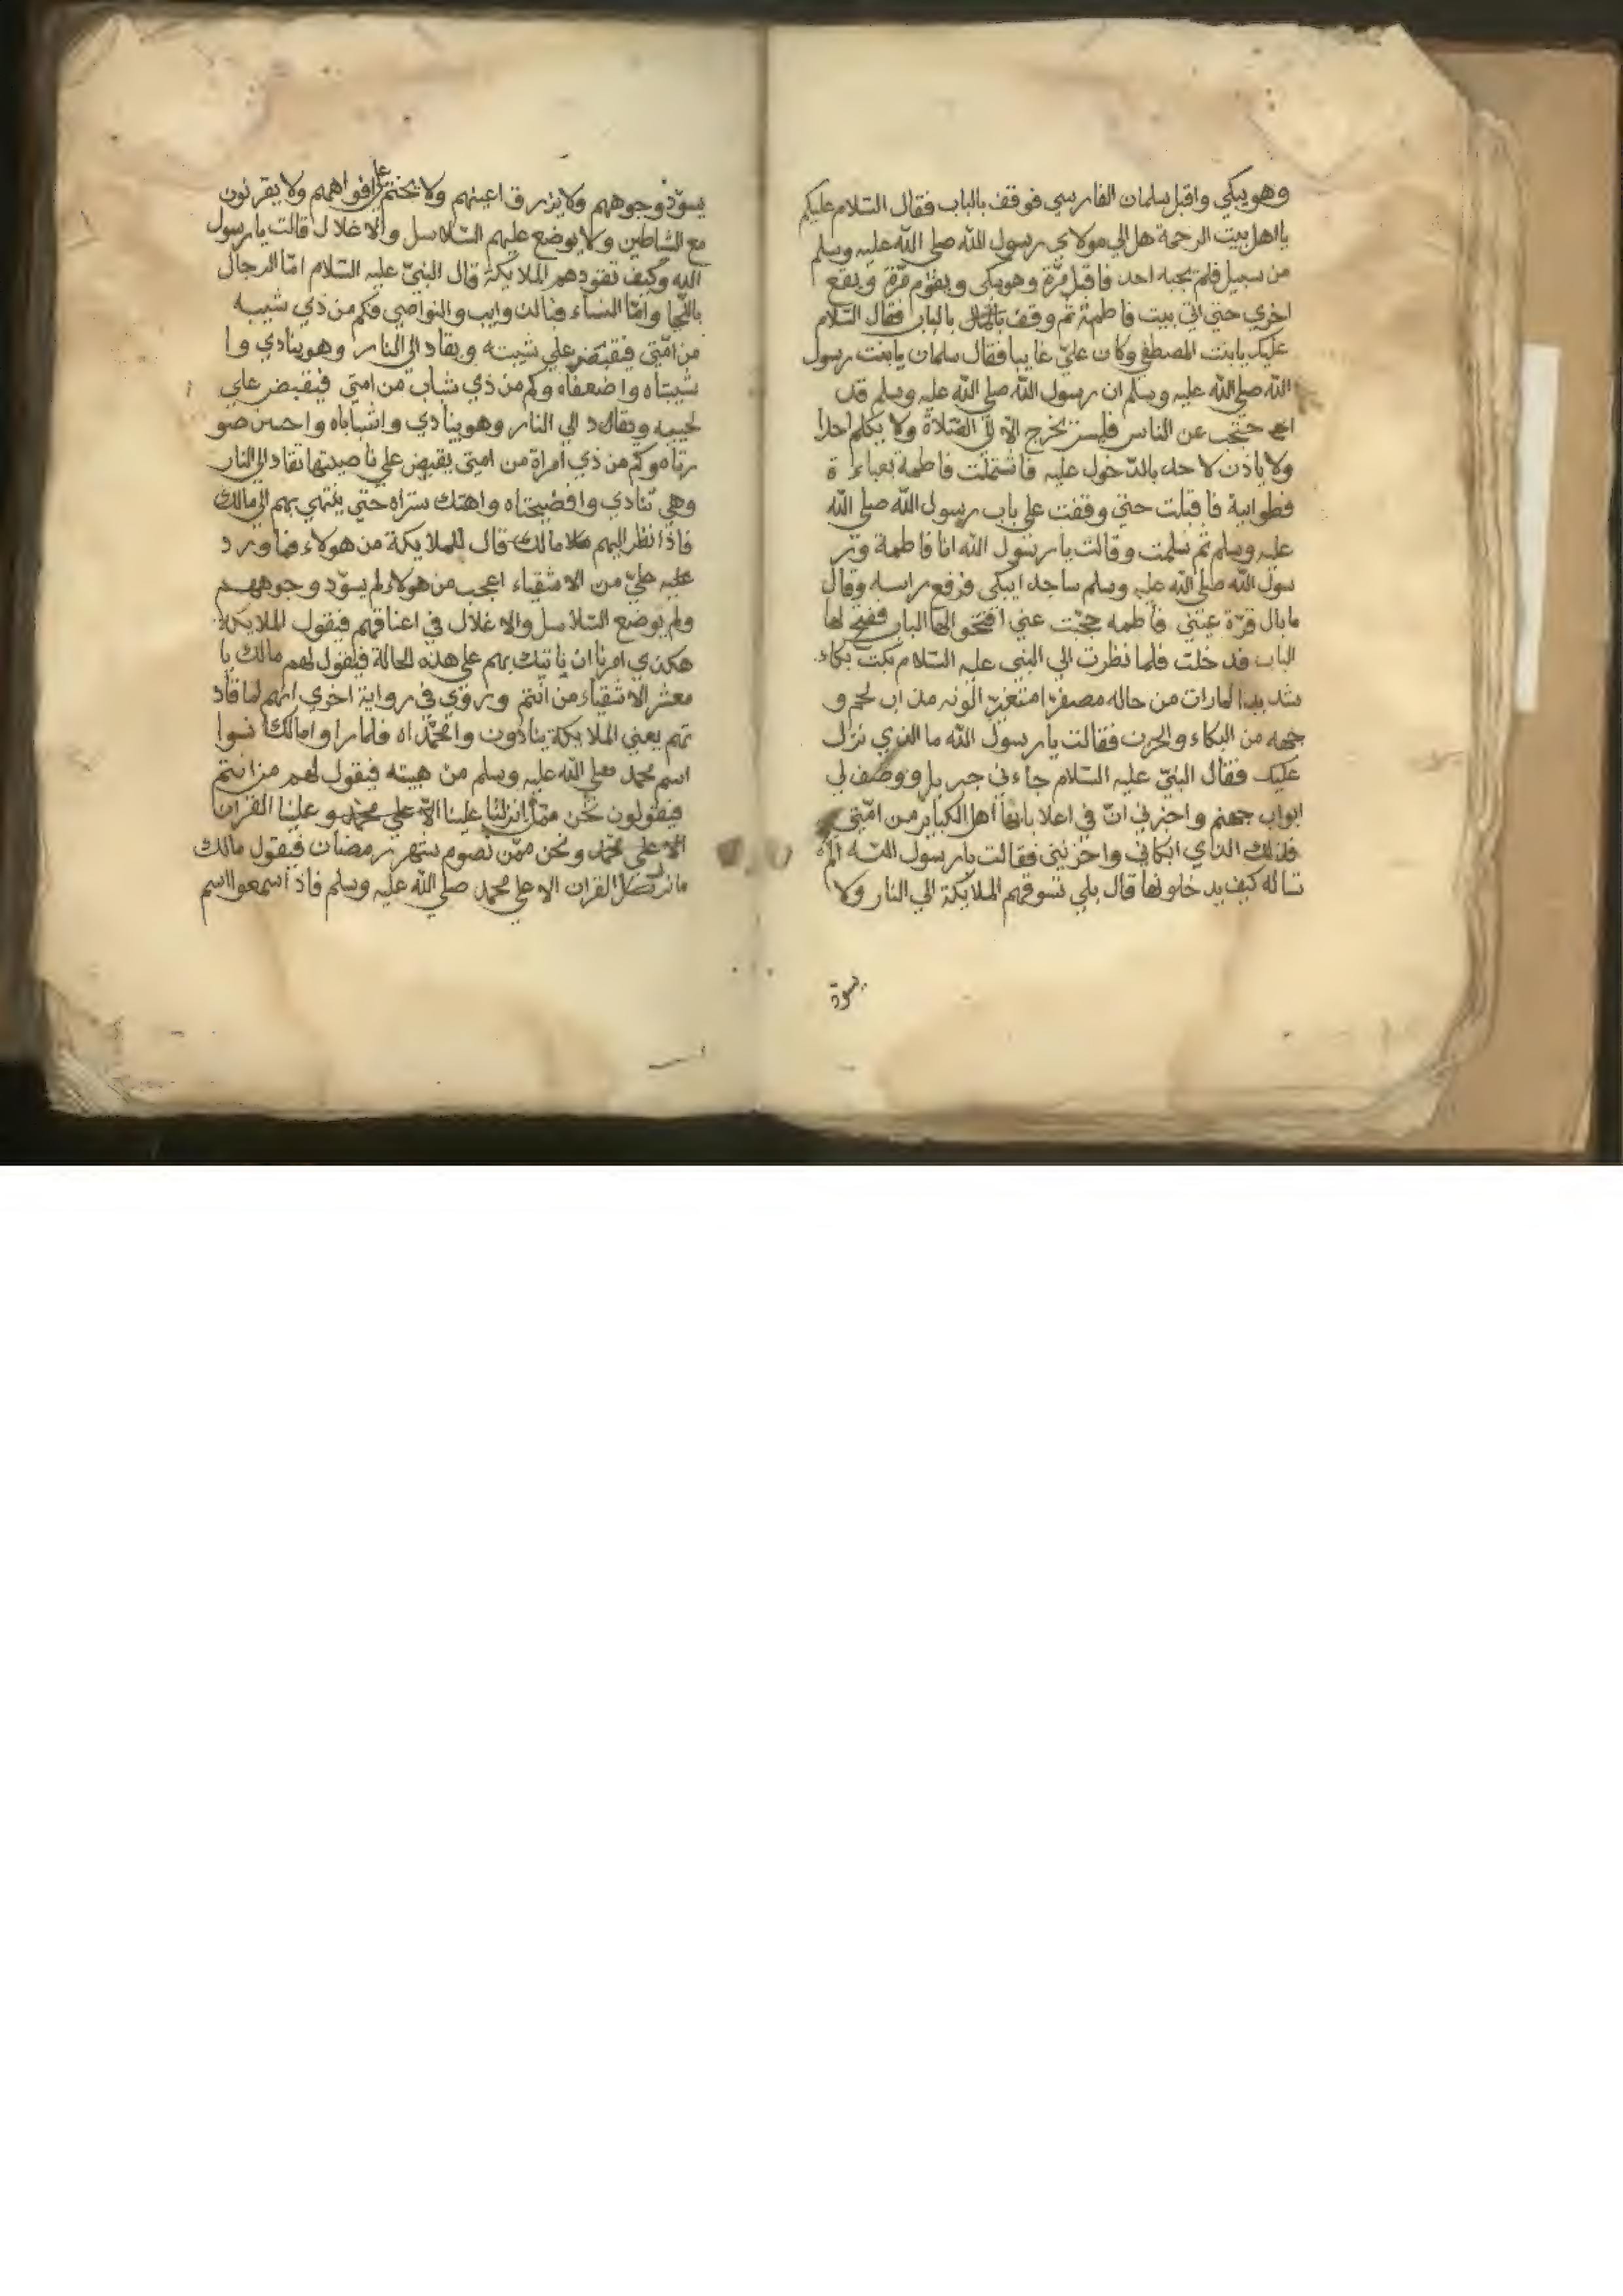 وهو يبكي واقبل سلمان الفارسي فوقف بالباب فقال السّلام عليكم
يا اهل بيت الرحمة هل الي مولاي رسول الله صلى الله عليه وسلم
من سبيل فلم يجبه احد فاقبل مرّة وهو يبكى ويقوم مرّة ويقع
اخري حتي اتي بيت فاطمة ثم وقف بالباب فقال السّلام
عليك يا بنت المصطفي وكان عليّ غايبا فقال سلمان يا بنت رسول
الله صلى الله عليه وسلم ان رسول الله صلى الله عليه وسلم قد
احتجب عن الناس فليس يخرج الاّ الي الصّلاة ولا يكلم احدا
ولا ياذن لاحد بالدّخول عليه فاشتملت فاطمة بعباءة
قطوانية فاقبلت حتي وقفت علي باب رسول الله صلى الله
عليه وسلم ثم سلمت وقالت يا رسول الله انا فاطمة ور
سول الله صلى الله عليه وسلم ساجدا يبكى فرفع راسه وقال
ما بال قرّة عيني فاطمه حجبت عني افتحوا لها الباب ففتح لها
الباب فدخلت فلما نظرت الي النبي عليه السّلام بكت بكاء
شديدا لما رات من حاله مصفرّا متغيّر الونه مذاب لحم و
جهه من البكاء والحزن فقالت يا رسول الله ما الذي نزل
عليك فقال النبيّ عليه السّلام جاءني جبريل ووصف لي
ابواب جهنم واخبرني انّ في اعلا بابها اهل الكباير من امّتي
فذلك الذي ابكاني واحزنني فقالت يا رسول اللّه الم
تساله كيف يدخلونها قال بلي تسوقهم الملايكة الي النار ولا
يسودّ
يسوّد وجوههم ولا يزرق اعينهم ولا يختم علي افواههم ولا يقرنون
مع الشّاطين ولا يوضع عليهم السّلاسل والاغلال قالت يا رسول
الله وكيف تقودهم الملايكة قال النبيّ عليه السّلام امّا الرجال
باللّحا وامّا النساء فبالذوايب والنواصي فكم من ذي شيبه
من امّتي فيقبض علي شيبته ويقاد الي النار وهو ينادي وا
شيبتاه واضعفاه وكم من ذي شاب من امتي فيقبض علي
لحييه ويقاد الي النار وهو ينادي واشباباه واحسن صو
رتاه وكم من ذي امراة من امتي يقبض علي ناصيتها تقاد الي النار
وهي تنادي وافضيحتاه واهتك ستراه حتي ينتهي بهم الي مالك
فاذا نظر اليهم مالك قال للملايكة من هولاء فما ورد
عليه عليّ من الاشقياء اعجب من هولاء لم يسوّد وجوههم
ولم يوضع السّلاسل والاغلال في اعناقهم فيقول الملايكة
هكذي امرنا ان ناتيك بهم علي هذه الحالة فيقول لهم مالك يا
معشر الاشقياء من انتم وروي في رواية اخري انهم لما قاد
تهم يعني الملايكة ينادون وامحمّداه فلما راوا مالك نسوا
اسم محمد صلي الله عليه وسلم من هيبته فيقول لهم من انتم
فيقولون نحن ممّن انزلنا علينا الاّ علي محمّد و علينا القران
الا علي محمّد ونحن ممّن نصوم شهر رمضان فيقول مالك
ما نزل القران الا علي محمد صلي الله عليه وسلم فاذا سمعوا اسم